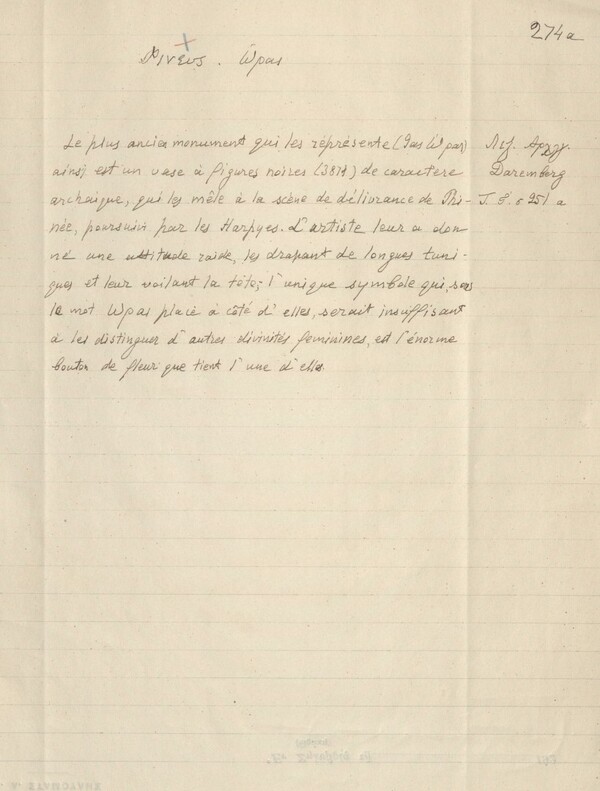 274a
Φινευς. Ὡραι
Le plus ancien monument qui les représente (τας Ὡραι) Λεξ. Αρχ.
ainsi est un vase à figures noires (3874) de caractère Daremberg
archaïque, qui les mêle à la scène de délivrance de Phi- T. 5. σ 251 a
née, poursuivi par les Harpyes. L'artiste leur a don
né une attitude raide, les drapant de longues tuni-
ques et leur voilant la tête; l'unique symbole qui, sans
le mot Ὡραι placé à côté d'elles, serait insuffisant
à les distinguer d'autres divinités feminines, est l'énorme
bouton de fleur que tient l'une d'elles.